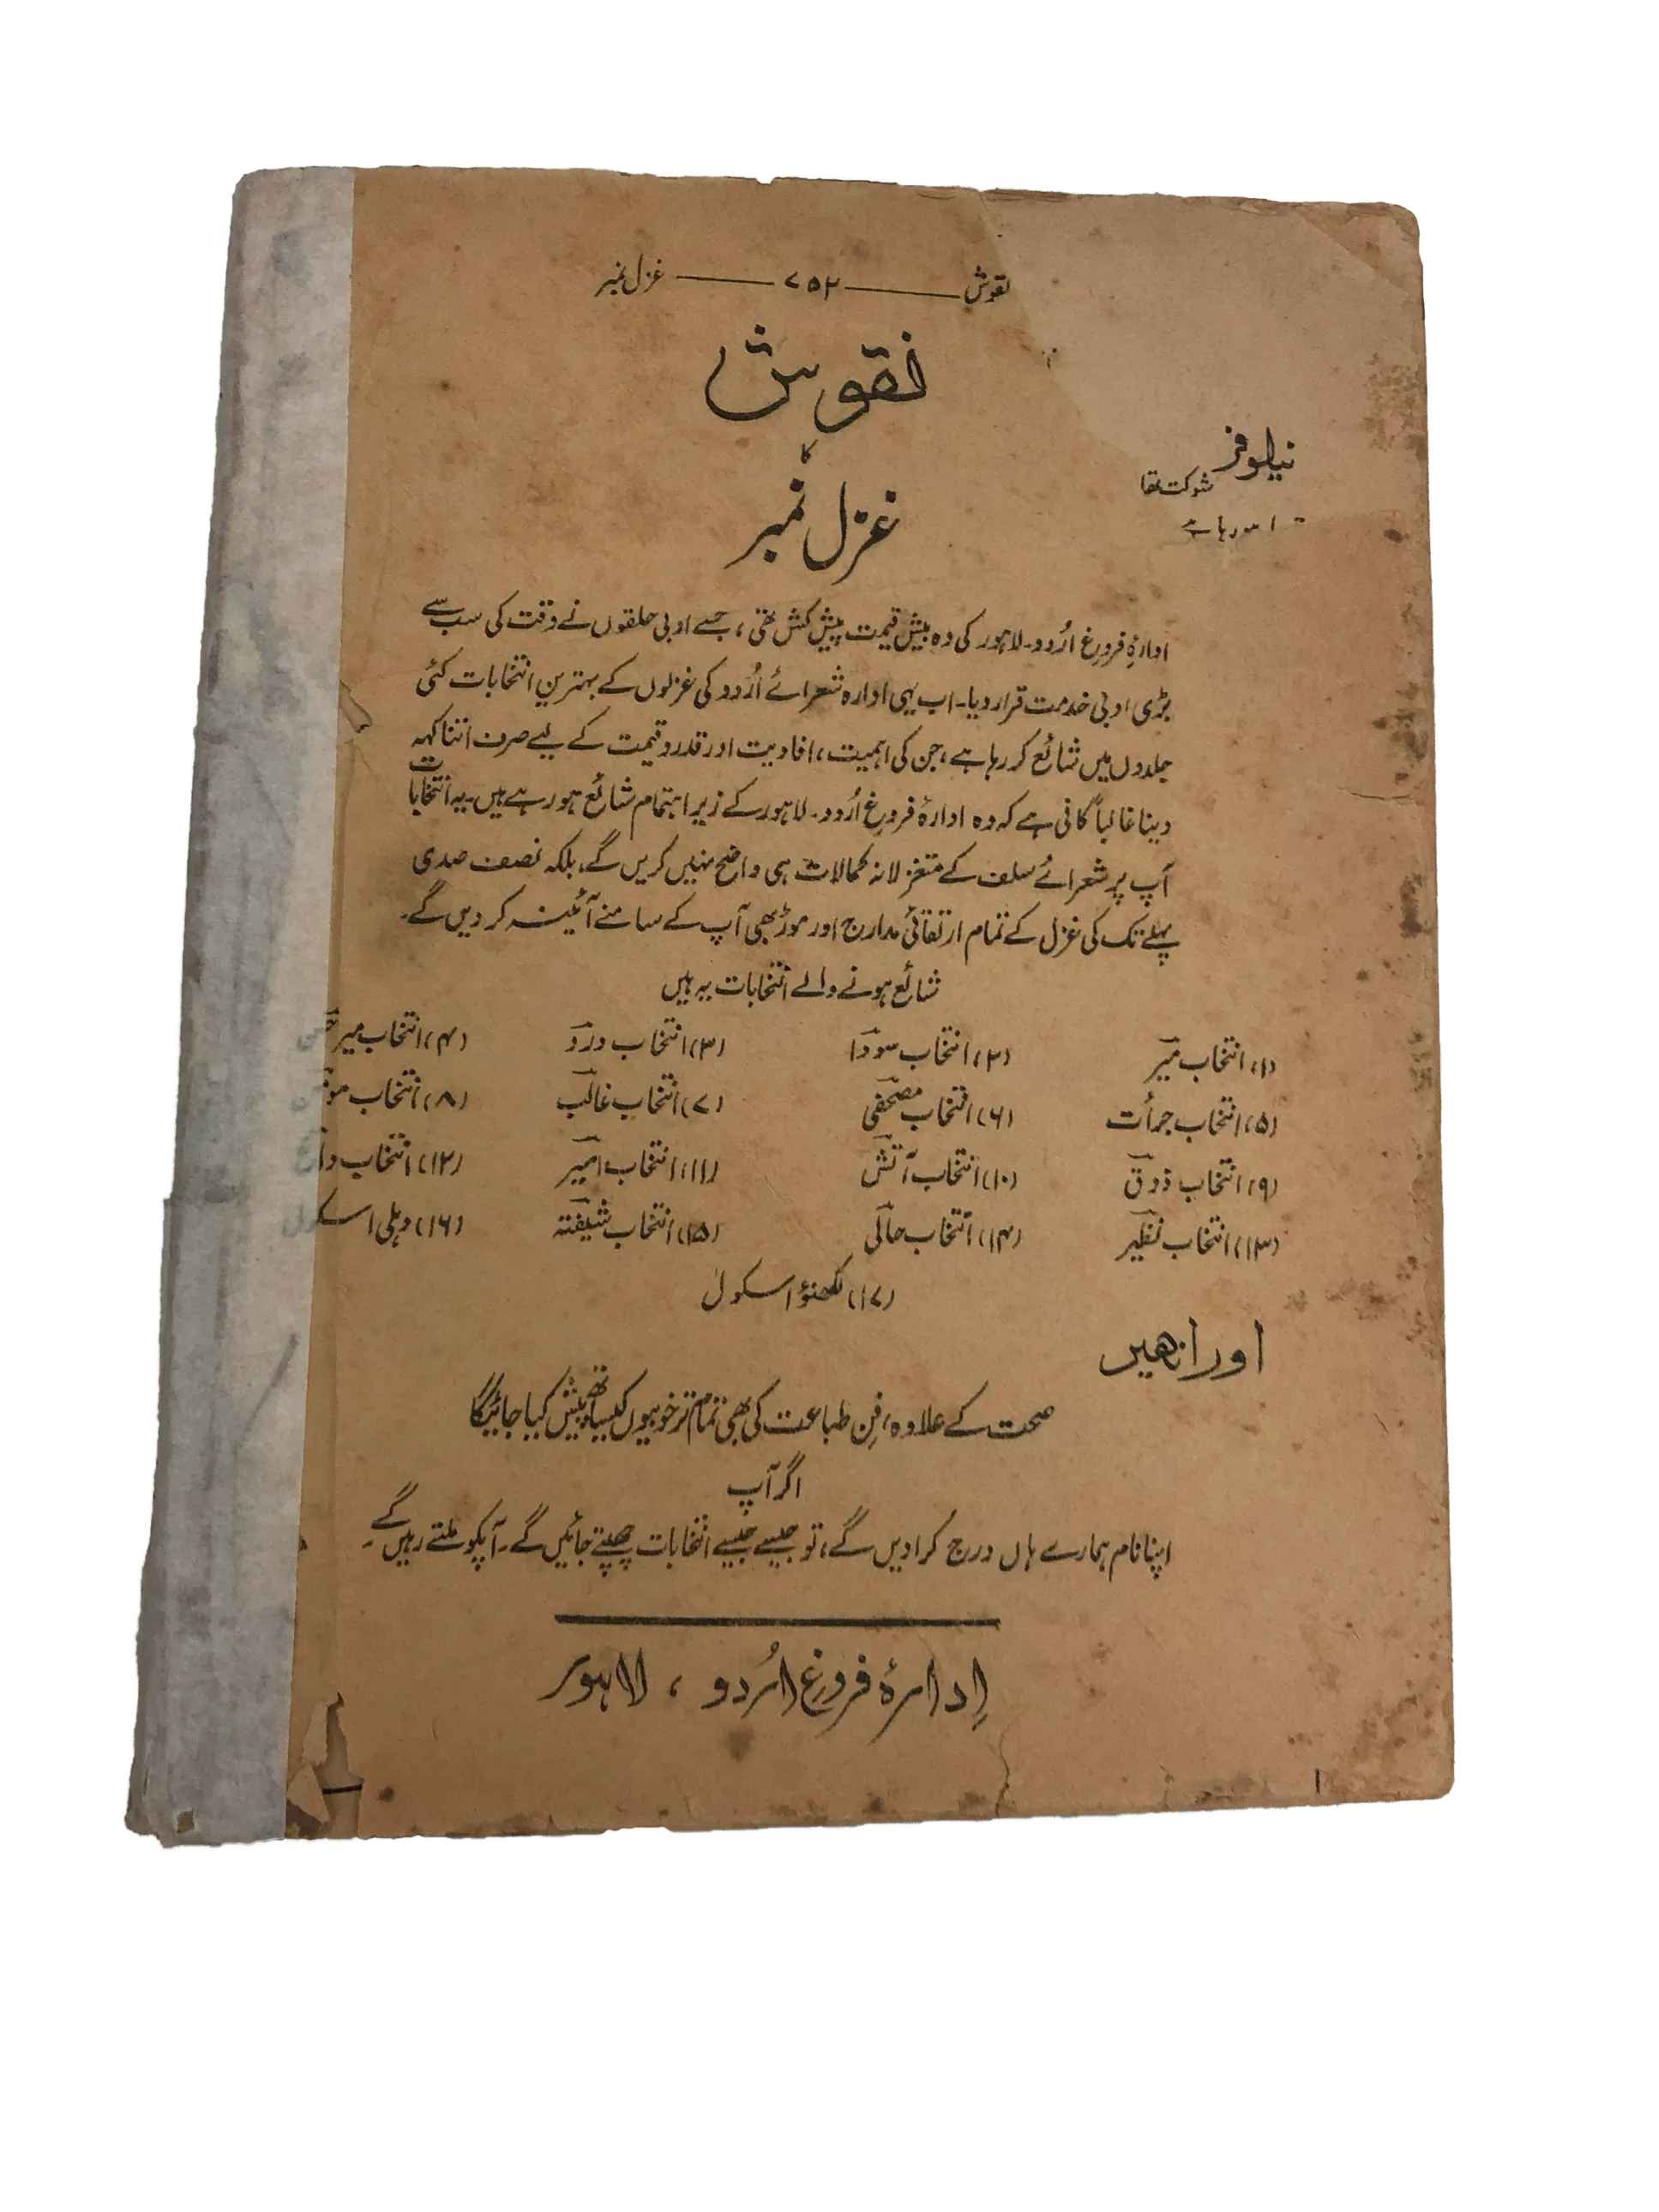 نقوش ——— ۷۵۲ ——— غزل نمبر
نقوش
کا
غزل نمبر
نیلوفر
شوکت تھا
رہا ہے
ادارۂ فروغِ اُردو۔ لاہور کی وہ بیش قیمت پیش کش تھی، جسے ادبی حلقوں نے وقت کی سب سے
بڑی ادبی خدمت قرار دیا۔ اب یہی ادارہ شعرائے اُردو کی غزلوں کے بہترین انتخابات کئی
جلدوں میں شائع کر رہا ہے، جن کی اہمیت، افادیت اور قدر و قیمت کے لیے صرف اتنا کہہ
دینا غالباً کافی ہے کہ وہ ادارۂ فروغِ اُردو۔ لاہور کے زیرِ اہتمام شائع ہو رہے ہیں۔ یہ انتخابات
آپ پر شعرائے سلف کے متغزلانہ کمالات ہی واضح نہیں کریں گے، بلکہ نصف صدی
پہلے تک کی غزل کے تمام ارتقائی مدارج اور موڑ بھی آپ کے سامنے آئینہ کر دیں گے۔
شائع ہونے والے انتخابات یہ ہیں
(۱) انتخاب میر (۲) انتخاب سودا (۳) انتخاب درد (۴) انتخاب میر حسن
(۵) انتخاب جرأت (۶) انتخاب مصحفی (۷) انتخاب غالب (۸) انتخاب مومن
(۹) انتخاب ذوق (۱۰) انتخاب آتش (۱۱) انتخاب امیر (۱۲) انتخاب داغ
(۱۳) انتخاب نظیر (۱۴) انتخاب حالی (۱۵) انتخاب شیفتہ (۱۶) دہلی اسکول
(۱۷) لکھنؤ اسکول
اور انھیں
صحت کے علاوہ، فنِ طباعت کی بھی تمام تر خوبیوں کیساتھ پیش کیا جائیگا
اگر آپ
اپنا نام ہمارے ہاں درج کرا دیں گے، تو جیسے جیسے انتخابات چھپتے جائیں گے۔ آپکو ملتے رہیں گے۔
اِدارۂ فروغِ اُردو ، لاہور